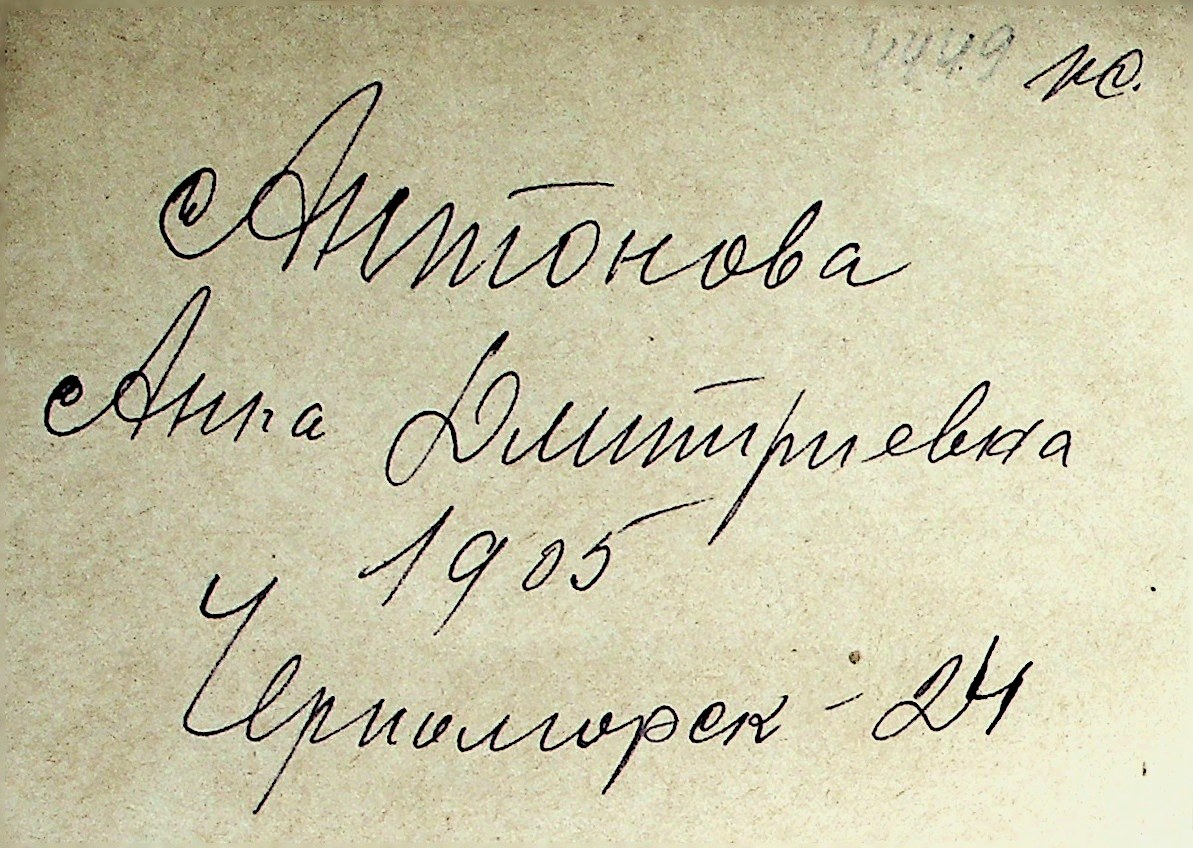 4449 пс.
Антонова
Анна Дмитриевна
1905
Черноморск - 24